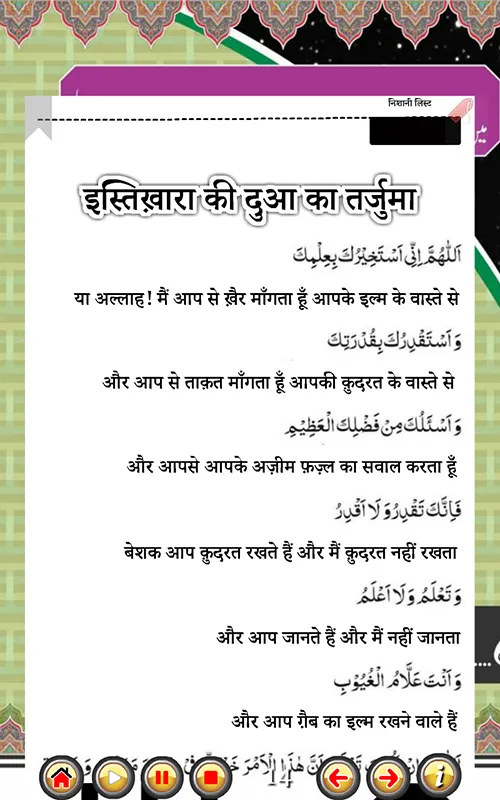 निशानी लिस्ट
میں
इस्तिख़ारा की दुआ का तर्जुमा
اَللّٰهُمَّ اِنِّیْ اَسْتَخِیْرُكَ بِعِلْمِكَ
या अल्लाह! मैं आप से ख़ैर माँगता हूँ आपके इल्म के वास्ते से
وَ اَسْتَقْدِرُكَ بِقُدْرَتِكَ
और आप से ताक़त माँगता हूँ आपकी क़ुदरत के वास्ते से
وَ اَسْئَلُكَ مِنْ فَضْلِكَ الْعَظِیْمِ
और आपसे आपके अज़ीम फ़ज़्ल का सवाल करता हूँ
فَاِنَّكَ تَقْدِرُ وَ لَا اَقْدِرُ
बेशक आप क़ुदरत रखते हैं और मैं क़ुदरत नहीं रखता
وَ تَعْلَمُ وَ لَا اَعْلَمُ
और आप जानते हैं और मैं नहीं जानता
وَ اَنْتَ عَلَّامُ الْغُیُوْبِ
और आप ग़ैब का इल्म रखने वाले हैं
هٰذَا الْاَمْرَ
14